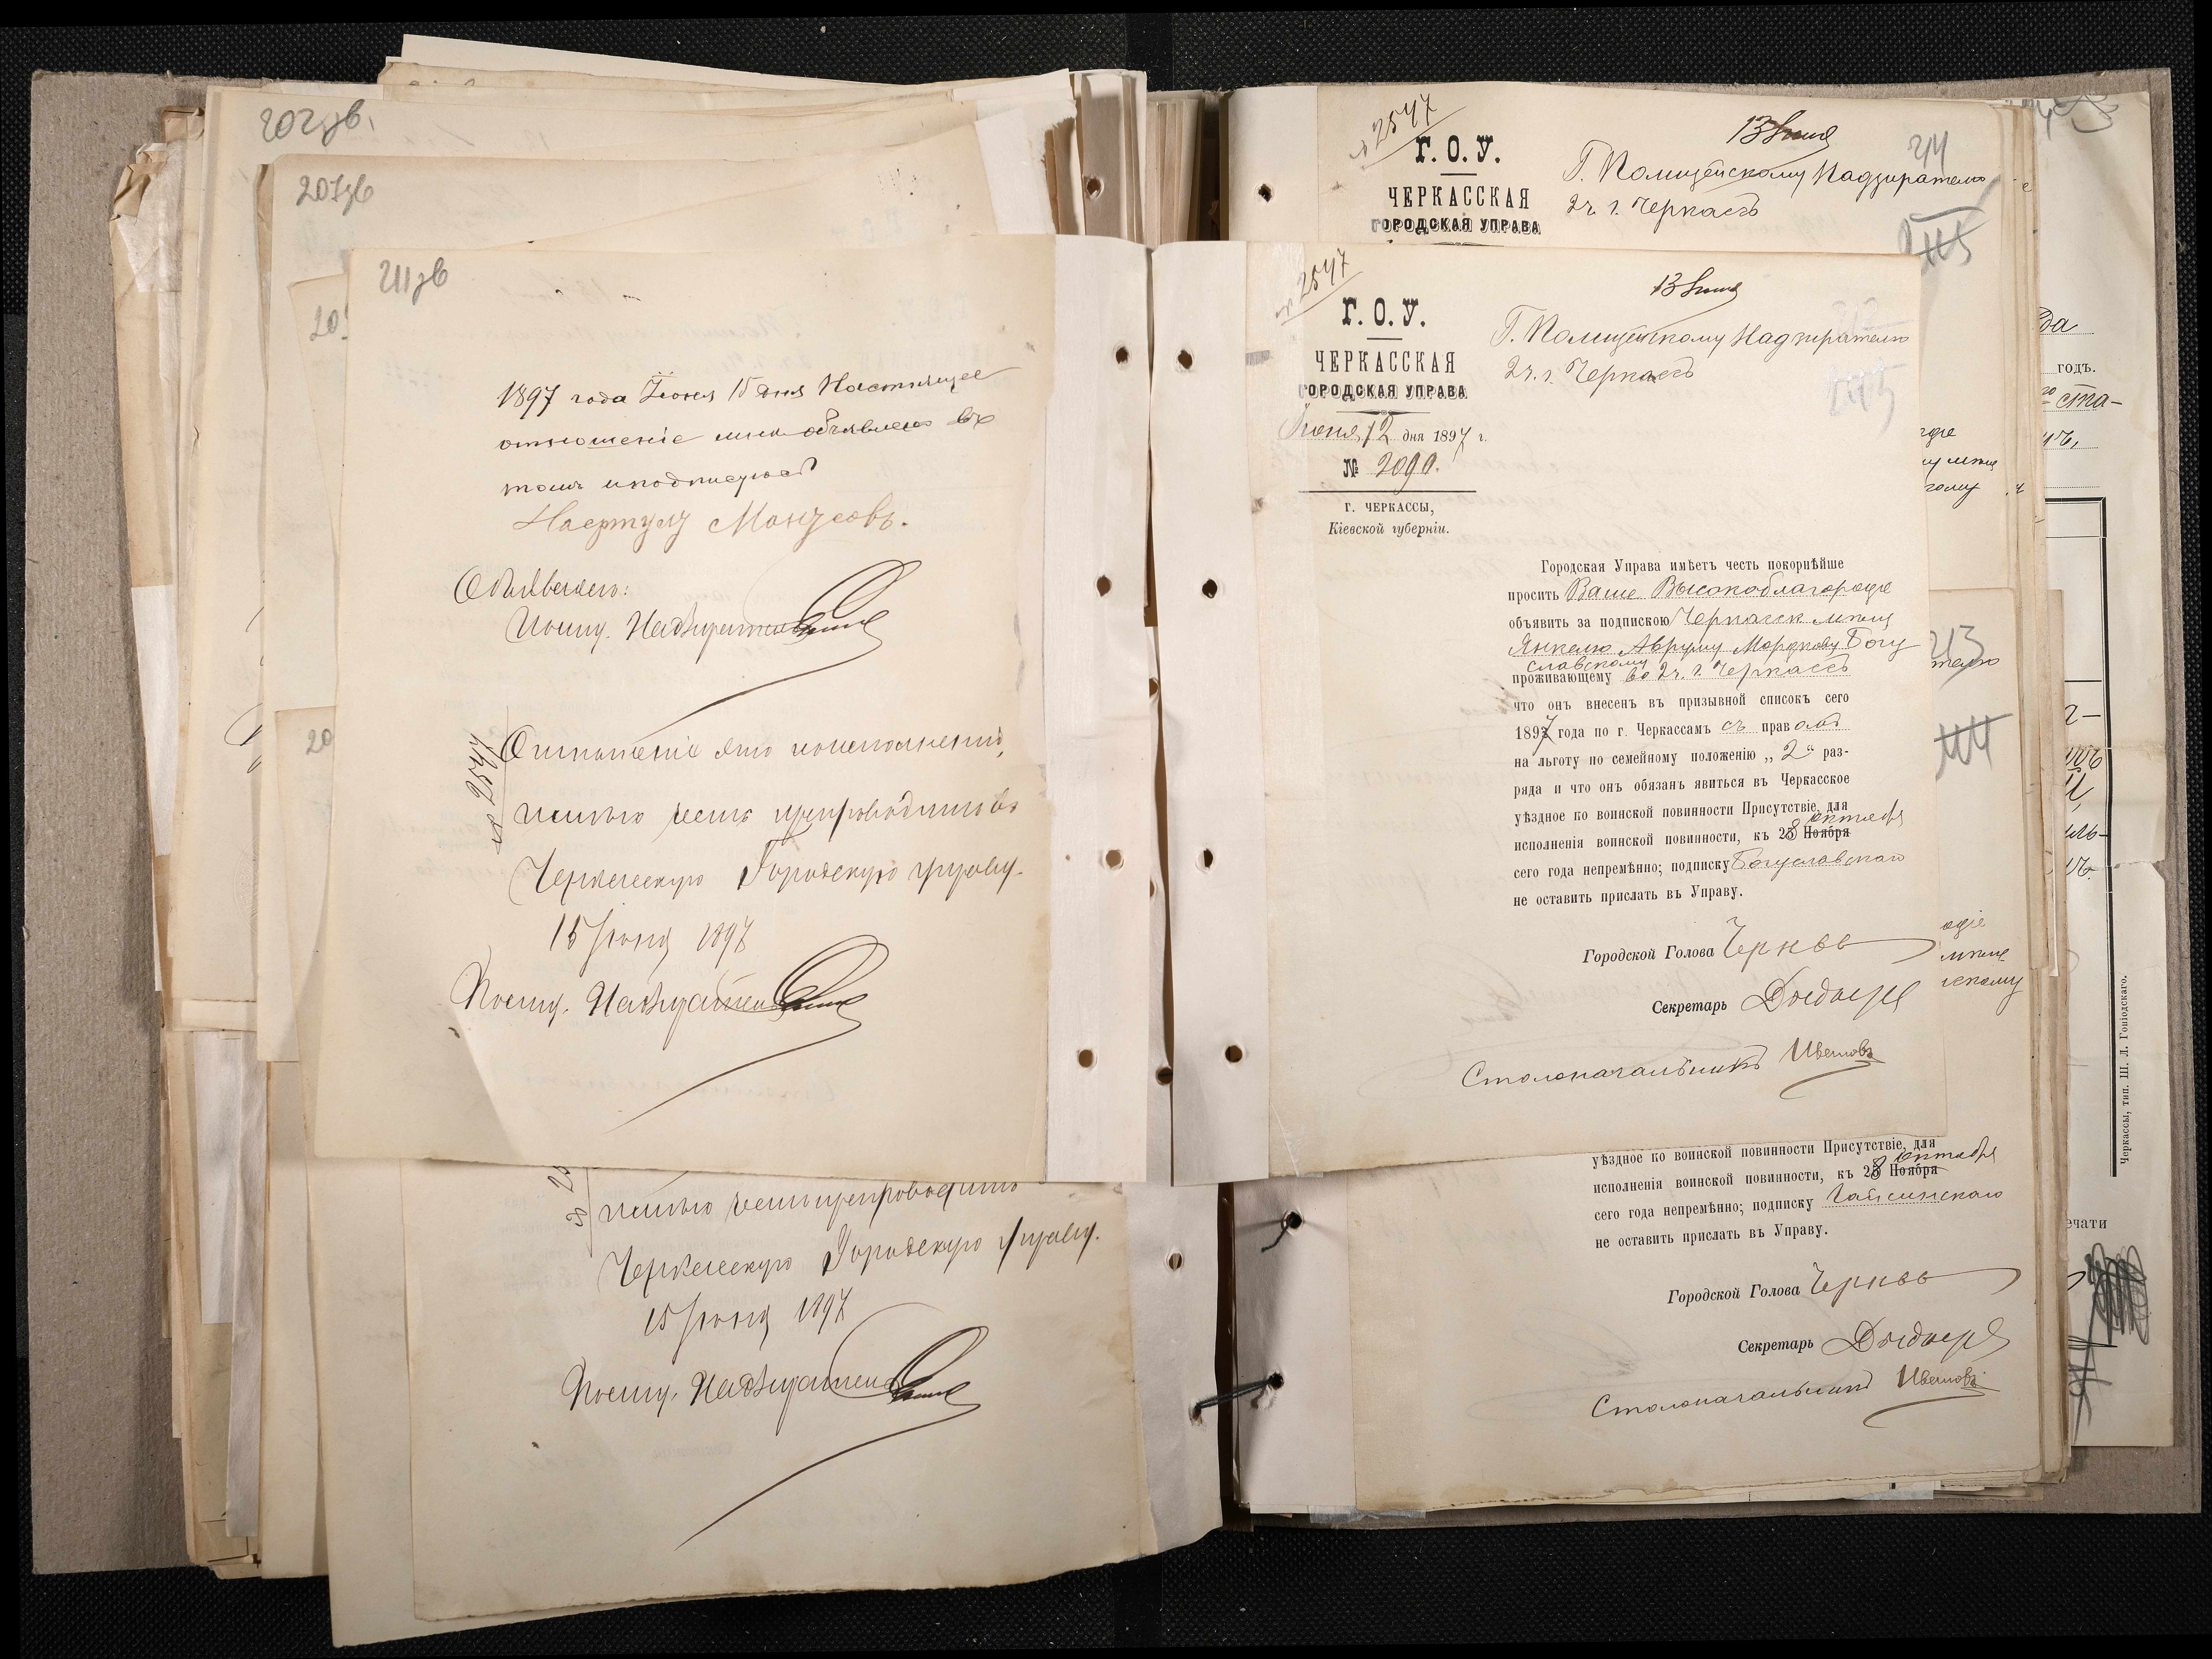 202зв.
203зв
211зв
20
20
1897 года Іюня 15 дня Настоящее
отношеніе мнѣ объявлено въ
томъ и подписуюсь
Объявилъ:
Полиц. Надзиратель
№ 2547
Отношеніе это по исполненіи,
имѣю честь препроводить въ
Черкасскую Городскую управу.
15 Іюня 1897
Полиц. Надзиратель
имѣю честь препроводить
Черкасскую Городскую управу.
15 Іюня 1897
Полиц. Надзиратель
№ 2547
Г. О. У.
ЧЕРКАССКАЯ
ГОРОДСКАЯ УПРАВА
13 Іюня
Г. Полицейскому Надзирателю
2 ч. г. Черкассъ
№ 2547
Г. О. У.
ЧЕРКАССКАЯ
ГОРОДСКАЯ УПРАВА
Іюня 12 дня 1897 г.
№ 2090.
Г. ЧЕРКАССЫ,
Кіевской губерніи.
13 Іюня
Г. Полицейскому Надзирателю
2 ч. г. Черкассъ
Городская Управа имѣетъ честь покорнѣйше
просить Ваше Высокоблагородіе
объявить за подпискою Черкасск. мѣщ.
Янкелю Авруму Мордкову Богу
славскому
проживающему во 2 ч. г. Черкассъ
что онъ внесенъ въ призывной списокъ сего
1897 года по г. Черкассамъ съ правомъ
на льготу по семейному положенію „2“ раз-
ряда и что онъ обязанъ явиться въ Черкасское
уѣздное по воинской повинности Присутствіе, для
исполненія воинской повинности, къ 28 Ноября октября
сего года непремѣнно; подписку Богуславскаго
не оставить прислать въ Управу.
Городской Голова
Секретарь
Столоначальникъ Ивановъ
213
уѣздное по воинской повинности Присутствіе, для
исполненія воинской повинности, къ 28 Ноября октября
сего года непремѣнно; подписку Гайсинскаго
не оставить прислать въ Управу.
Городской Голова
Секретарь
Столоначальникъ Ивановъ
годъ.
ста-
ечати
Черкассы, тип. Ш. Л. Гоніодскаго.